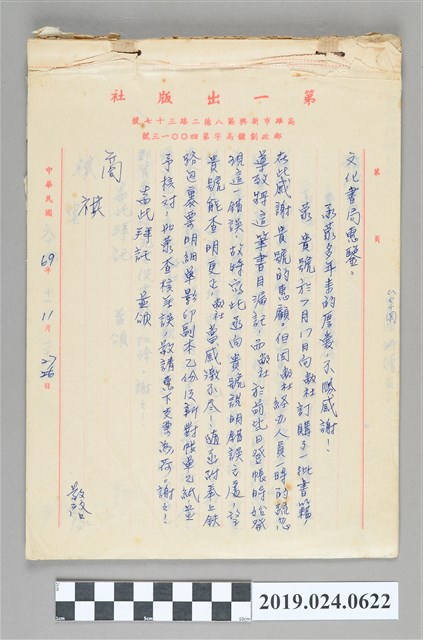 第一出版社
高雄市新興區八德二路三十七號
郵政劃撥高字第四〇〇一三號
第 頁
文化書局惠鑒：
承蒙多年來的厚愛，不勝感謝！
茲 貴號於 月 日向敝社訂購了一批書籍，
在此感謝 貴號的惠顧。但因敝社經辦人員一時的疏忽
導致將這筆書目漏記，而敝社於前些日登帳時始發
現這一錯誤，故特寫此函向貴號說明錯誤之處，望
貴號能查明更正，敝社當感激不尽！隨函附奉上鉄
路包裹票明細單影印副本乙份及新對帳單乙紙並
予核對，如蒙查核無誤，敬請惠下支票為荷。謝謝！
耑此拜託 並頌
商祺
敬啟
中華民國69年11月26日
2019.024.0622